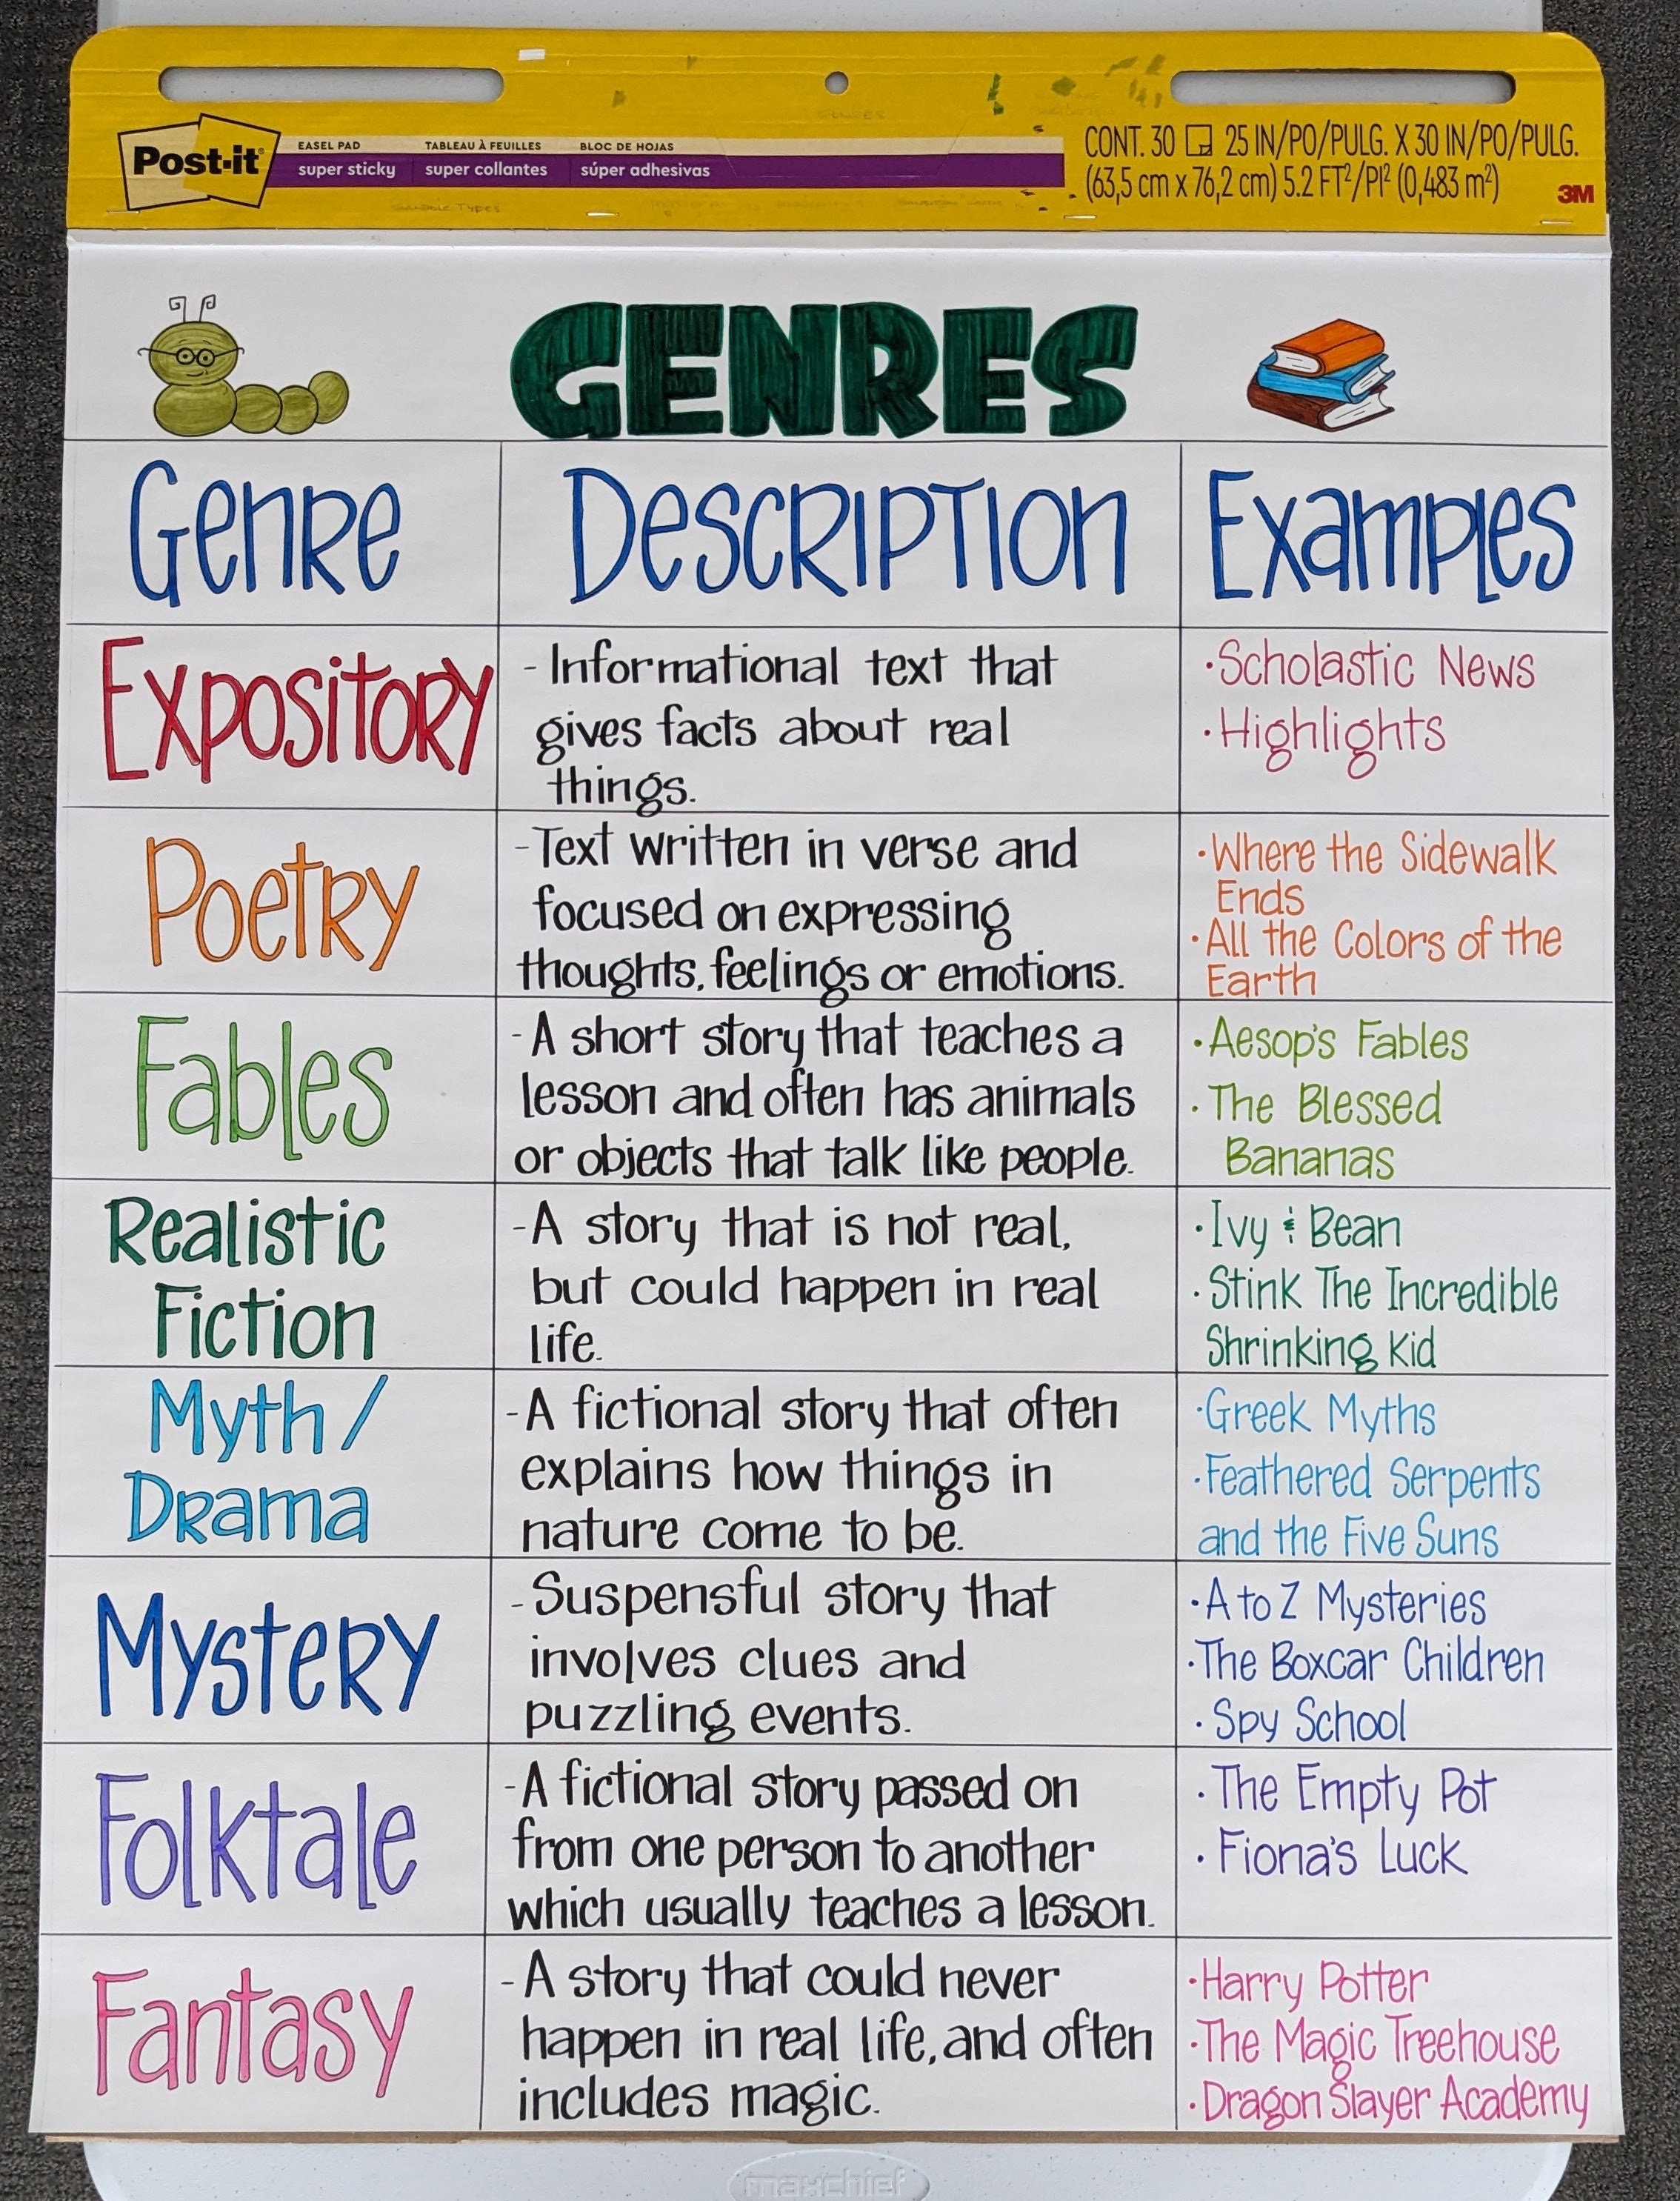 Post-it
EASEL PAD
super sticky
TABLEAU À FEUILLES
super collantes
BLOC DE HOJAS
súper adhesivas
CONT. 30 25 IN/PO/PULG. X 30 IN/PO/PULG.
(63,5 cm x 76,2 cm) 5.2 FT²/PI² (0,483 m²)
3M
GENRES
Genre
Description
Examples
Expository
- Informational text that
gives facts about real
things.
• Scholastic News
• Highlights
Poetry
- Text written in verse and
focused on expressing
thoughts, feelings or emotions.
• Where the Sidewalk
Ends
• All the Colors of the
Earth
Fables
- A short story that teaches a
lesson and often has animals
or objects that talk like people.
• Aesop's Fables
• The Blessed
Bananas
Realistic
Fiction
- A story that is not real,
but could happen in real
life.
• Ivy & Bean
• Stink The Incredible
Shrinking Kid
Myth /
Drama
- A fictional story that often
explains how things in
nature come to be.
• Greek Myths
• Feathered Serpents
and the Five Suns
Mystery
- Suspensful story that
involves clues and
puzzling events.
• A to Z Mysteries
• The Boxcar Children
• Spy School
Folktale
- A fictional story passed on
from one person to another
which usually teaches a lesson.
• The Empty Pot
• Fiona's Luck
Fantasy
- A story that could never
happen in real life, and often
includes magic.
• Harry Potter
• The Magic Treehouse
• Dragon Slayer Academy
maxchief